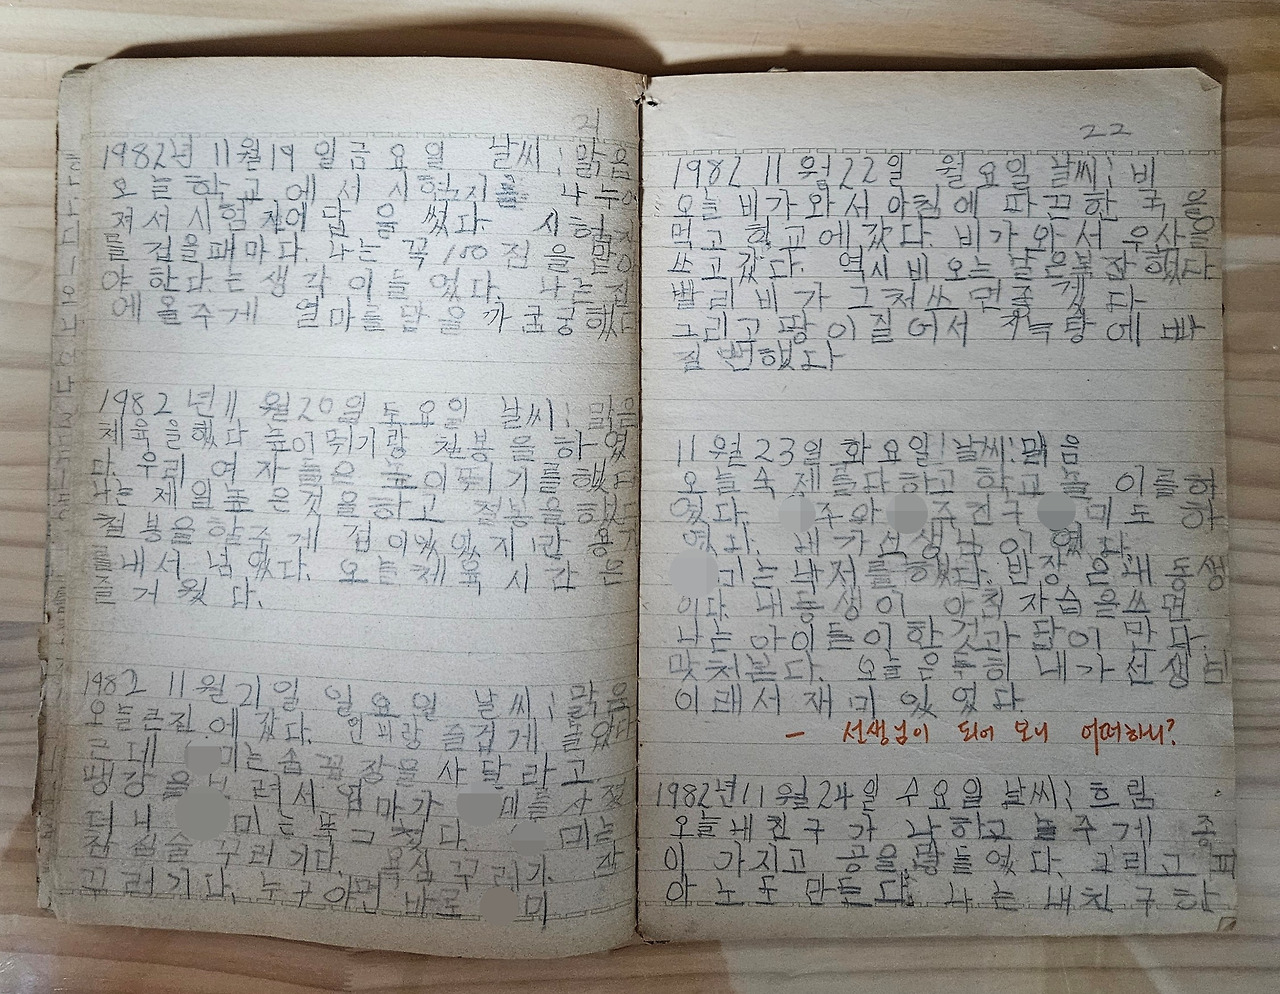 21
1982년 11월 19 일 금 요 일 날씨 ; 맑음
오늘 학교에서 시험지를 나누어
져서 시험지에 답을 썼다. 시험지
를 겁을때마다. 나는 꼭 100 전을 맡아
야 한다.는 생각이들 었다. 나는 집
에 올주게 열마를 맡을까 궁굼했다
1982 년 11 월 20일 토요일 날씨 ; 맑은
체육을했다 높이뛰기랑 철봉을 하 였
다. 우리 여자들은 높이뛰기를했다
나는 제일높은것을하고 철봉을했다
철봉을할주게 겁이있었지만 용기
를 내서 넘었다. 오늘체육 시간은
즐거웠다.
1982 11 월 21 일 일요일 날씨 ; 맑음
오늘큰집에 갔다. 언니랑 즐겁게 놀았다
근데 미는 솜꼽장을 사달라고
땡강을 려서. 엄마가 미를 사줬
더니 미는 뚝그쳤다. 미는
심술꾸러기다. 욕심꾸러기.
꾸러기다. 누구야면 바로 미
22
1982 11 월22일 월요일 날씨 ; 비
오늘 비가와서 아침에 따끈한 국을
먹고 학교에 갔다. 비가 와서 우산을
쓰고갔다. 역시 비 오는 날은복잡했다
빨리 비가 그처쓰면좋겠다
그리고 땅이질어서 탕에 빠
질 뻔했다
11 월 23일 화요일! 날씨: 맑음
오늘숙제를다하고 학교놀이를하
였다. 주와 주친구 미도 하
였다. 내가선생님이 였다.
기는 낙저를했다. 반장은내동생
이다. 내동생이 아침 자습을쓰면
나는 아이들이한것과 답이 만다.
맞처본다. 오늘은 내가선생님
이래서 재미 있었다.
- 선생님이 되어 보니 어떠하니?
1982년 11월 24일 수요일 날씨 ; 흐림
오늘내친구가 나하고 놀주게 종
이 가지고 공을 만들었다. 그리고 피
아노도 만든다. 나는 내친구한